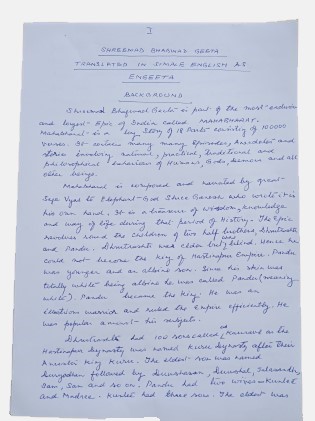 3
SHREEMAD BHAGWAD GEETA
TRANSLATED IN SIMPLE ENGLISH AS
ENGEETA
BACKGROUND
Shreemad Bhagwad Geeta is part of the most
and largest Epic of India called MAHABHARAT.
Mahabharat is a big Story of 18 Parts consisting of 100000
verses. It contains many many Episodes, Anecdotes and
stories involving natural, practical, traditional and
philosophical behaviour of Humans, Gods, Demons and all
other beings.
Mahabharat is composed and narrated by great
Sage Vyas to Elephant-God Shree Ganesh who wrote it in
his own hand. It is a treasure of wisdom, knowledge
and way of life during that period of History. The Epic
revolves round the children of two half brothers, Dhrutrashtra
and Pandu. Dhrutrashtra was elder but blind. Hence he
could not become the King of Hastinapur Empire. Pandu
was younger and an albino son. Since his skin was
totally white being albino he was called Pandu (meaning
white). Pandu became the King. He was an
warrior and ruled the Empire efficiently. He
was popular amongst his subjects.
Dhrutrashtra had 100 sons called Kauravs as the
Hastinapur Dynasty was named Kuru Dynasty after their
ancestor King Kuru. The eldest son was named
Duryodhan followed by Dushasan,
and so on. Pandu had two wives - Kunti
and Madree. Kunti had three sons. The eldest was